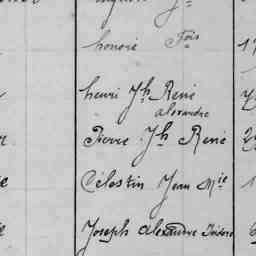 honoré Fois
henri Jh René
alexandre
Pierre Jh René
Célestin Jean Mie
Joseph Alexandre Isidore